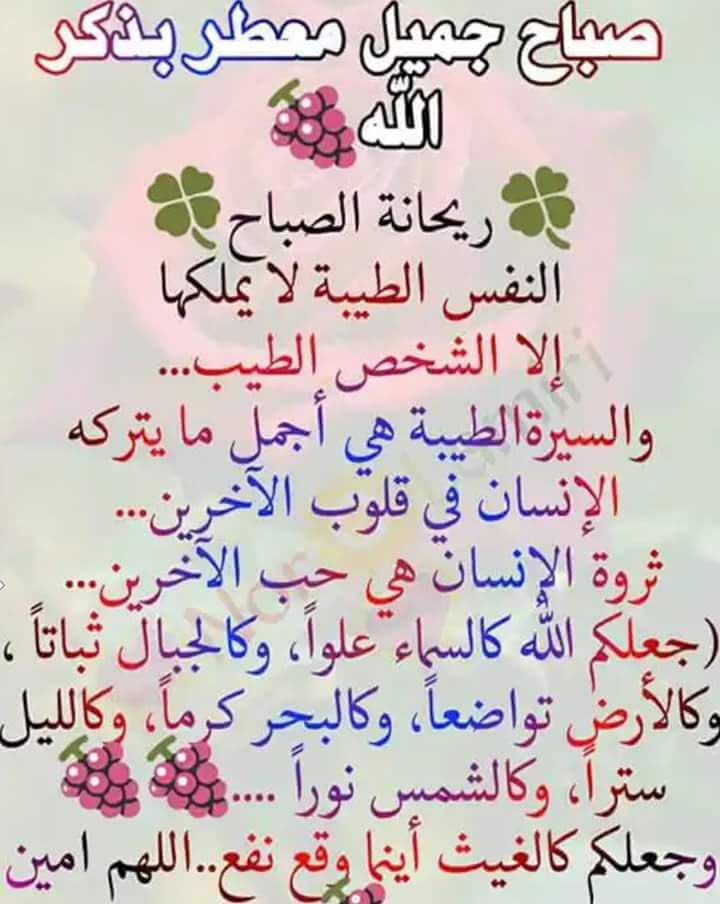 صباح جميل معطر بذكر
الله🍇
🍀ريحانة الصباح🍀
النفس الطيبة لا يملكها
إلا الشخص الطيب...
والسيرةالطيبة هي أجمل ما يتركه
الإنسان في قلوب الآخرين...
ثروة الإنسان هي حب الآخرين...
(جعلكم الله كالسماء علواً، وكالجبال ثباتاً ،
وكالأرض تواضعاً، وكالبحر كرماً، وكالليل
ستراً، وكالشمس نوراً ....🍇🍇
وجعلكم كالغيث أينما وقع نفع..اللهم امين
🍇